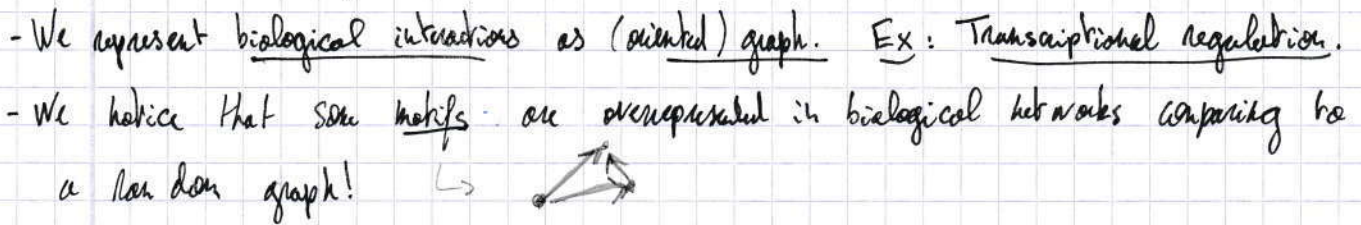 - We represent biological interactions as (oriented) graph. Ex: Transcriptional regulation.
- We notice that some motifs are overrepresented in biological networks comparing to
a random graph! ↳